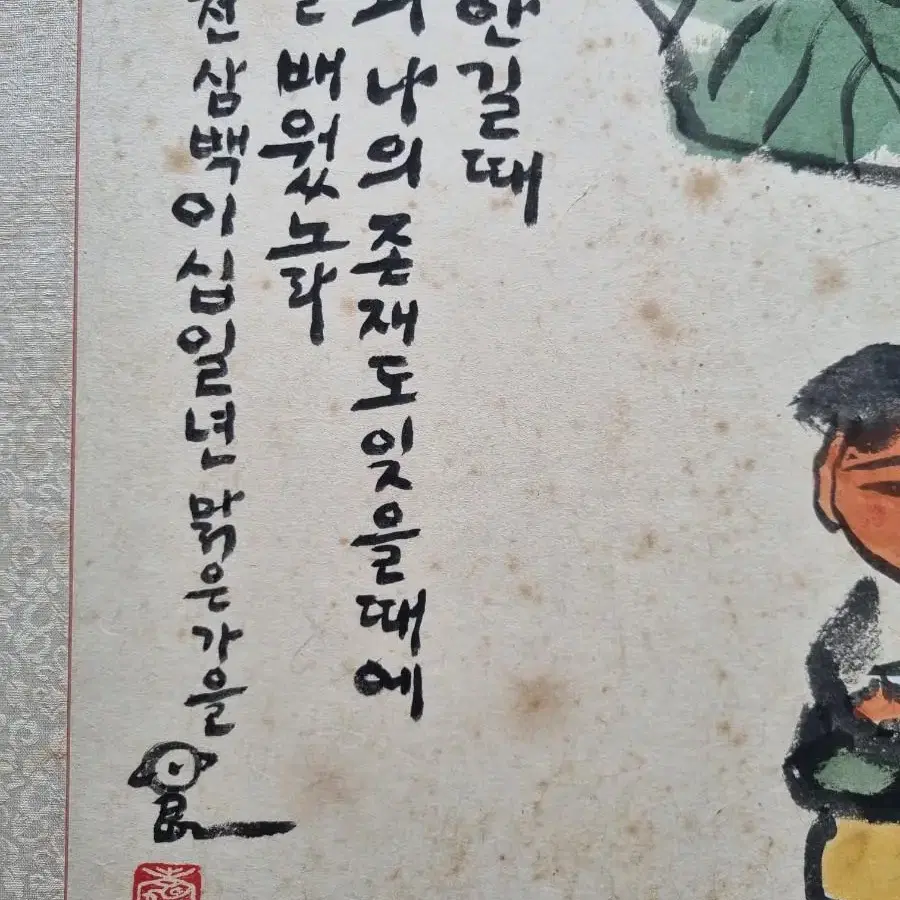 길때
나의존재도잊을때에
배웠노라
천삼백이십일년 맑은가을